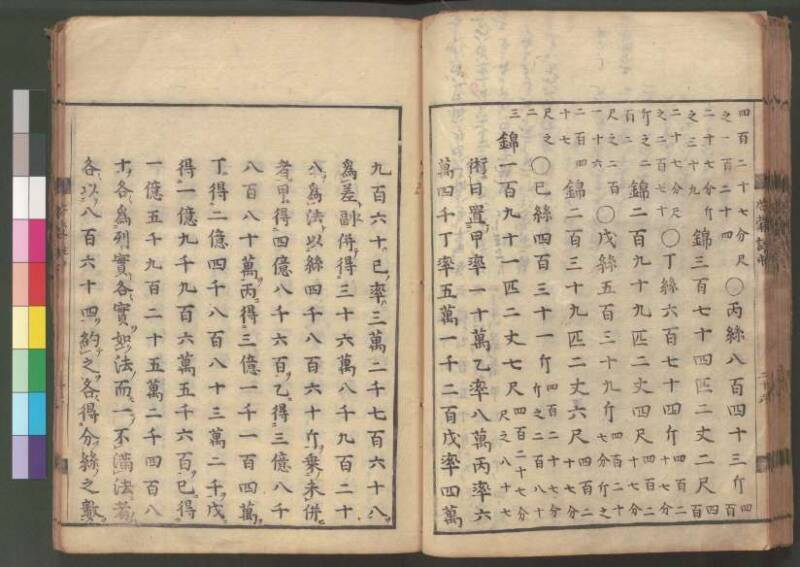 四百二十七分尺之一百二十四○丙絲八百四十三斤四百
二十七分斤之三十九錦三百七十四匹二丈二尺四百
二十七分尺之二百七十○丁絲六百七十四斤四百二十七分
斤之二百二錦二百九十九匹二丈四尺四百二十七分
尺之二百一十六○戊絲五百三十九斤四百二十七分斤之
二百四十七錦二百三十九匹二丈六尺四百二十七分
尺之二○巳絲四百三十一斤四百二十七分斤之二百八十
三錦一百九十一匹二丈七尺四百二十七分尺之八十七
術曰置甲率一十萬乙率八萬丙率六
萬四千丁率五萬一千二百戊率四萬
九百六十巳率三萬二千七百六十八
爲差副併得三十六萬八千九百二十
八爲法以絲四千八百六十斤乗未併
者甲得四億八千六百乙得三億八千
八百八十萬丙得三億一千一百四萬
丁得二億四千八百八十三萬二千戊
得一億九千九百六萬五千六百巳得
一億五千九百二十五萬二千四百八
十各爲列實各實如法而一不滿法者
各以八百六十四約之各得分絲之數